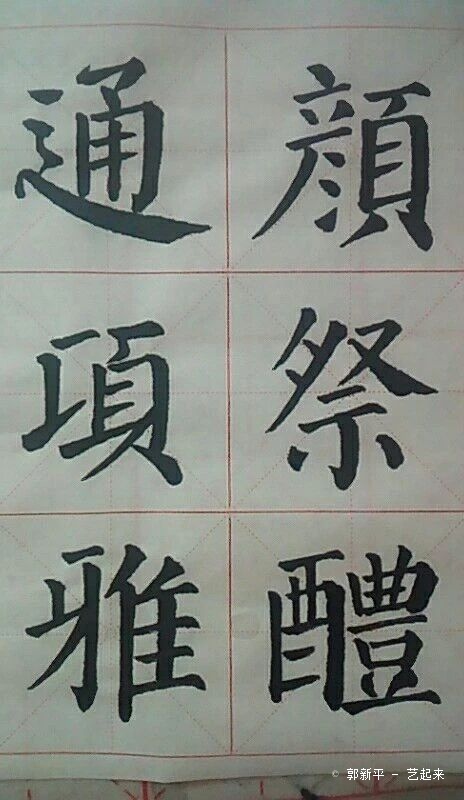 顔祭醴
通項雅
© 郭新平 – 艺起来